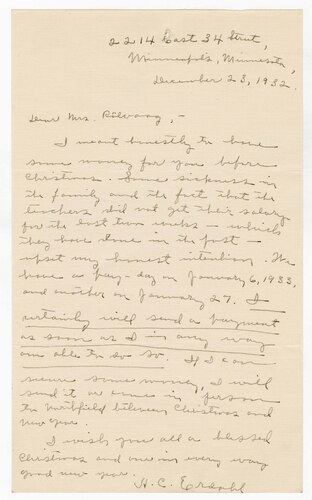 2214 East 34 Street,
Minneapolis, Minnesota,
December 23, 1932.
Dear Mrs. Rölvaag,-
I meant honestly to have
some money for you before
Christmas. Some sickness in
the family and the fact that the
teachers did not get their salary
for the last two weeks - which
they have done in the past -
upset my honest intention. We
have a pay-day on January 6, 1933,
and another on January 27. I
certainly will send a payment
as soon as I in any way
am able to do so. If I can
secure some money, I will
send it or come in person
to Northfield between Christmas and
New Year.
I wish you all a blessed
Christmas and one in every way
good new year.
H. C. Erdahl